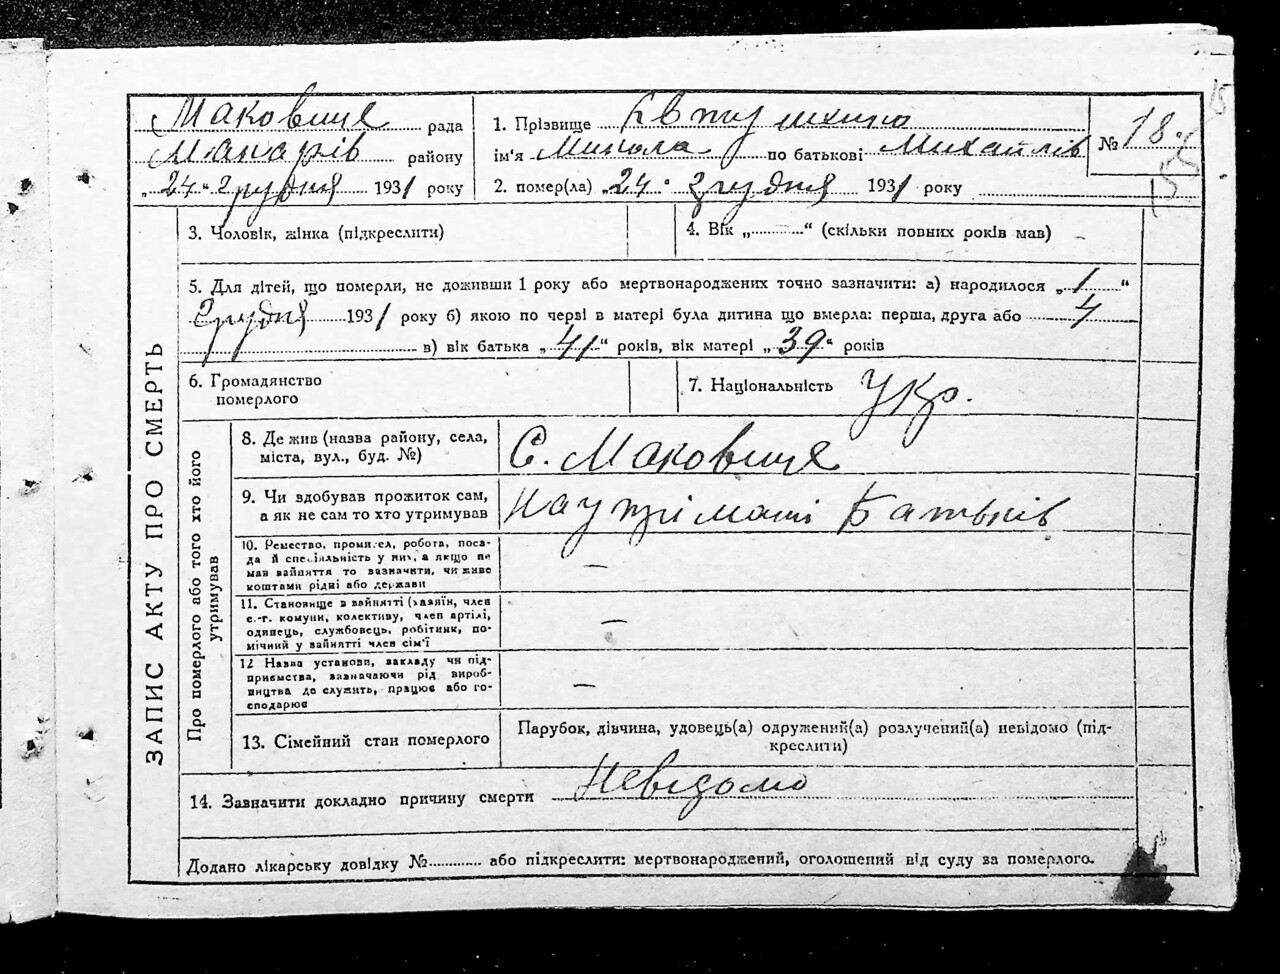 Маковище рада
Макарів району
„24" Грудня 1931 року
1. Прізвище Євтушенко
ім'я Микола по батькові Михайлів
2. помер(ла) „24" грудня 1931 року
№ 18.
ЗАПИС АКТУ ПРО СМЕРТЬ
3. Чоловік, жінка (підкреслити)
4. Вік „..........“ (скільки повних років мав)
5. Для дітей, що померли, не доживши 1 року або мертвонароджених точно зазначити: а) народилося „1“
Грудня 1931 року б) якою по черві в матері була дитина що вмерла: перша, друга або 4
в) вік батька „41“ років, вік матері „39“ років
6. Громадянство
померлого
7. Національність Укр.
Про померлого або того хто його
утримував
8. Де жив (назва району, села,
міста, вул., буд. №)
С. Маковище
9. Чи вдобував прожиток сам,
а як не сам то хто утримував
На утрімані Батьків
10. Ремество, промисел, робота, поса-
да й спеціяльність у них, а якщо не
мав вайняття то зазначити, чи живе
коштами рідні або держави
–
11. Становище в вайнятті (хазяїн, член
с.-г. комуни, колективу, член артілі,
одинець, службовець, робітник, по-
мічний у вайнятті член сім'ї
–
12 Назва установи, закладу чи під-
приємства, вазначаючи рід вироб-
ництва де служить, працює або го-
сподарює
–
13. Сімейний стан померлого
Парубок, дівчина, удовець(а) одружений(а) розлучений(а) невідомо (під-
креслити)
14. Зазначити докладно причину смерти Невідомо
Додано лікарську довідку №............ або підкреслити: мертвонароджений, оголошений від суду за померлого.